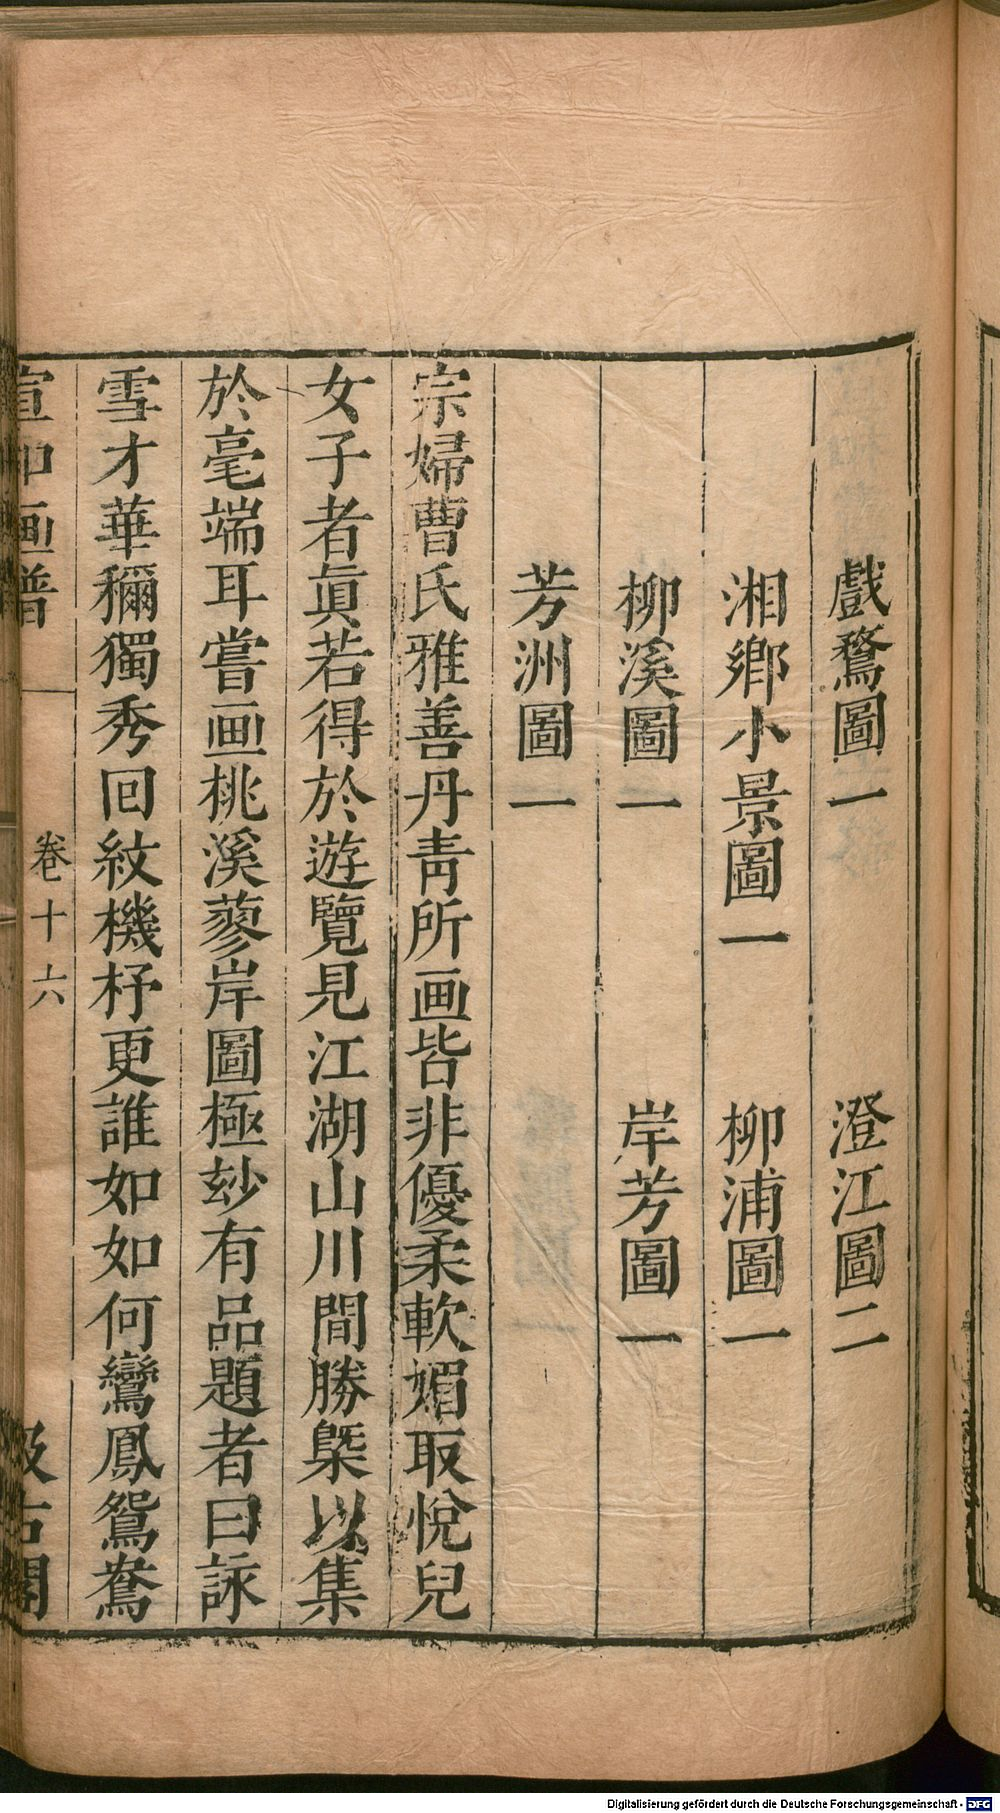 戲鶩圖一　澄江圖二
湘鄉小景圖一　柳浦圖一
柳溪圖一　岸芳圖一
芳洲圖一
宗婦曹氏雅善丹青所画皆非優柔軟媚取悅兒
女子者眞若得於遊覽見江湖山川間勝槩以集
於毫端耳嘗画桃溪蓼岸圖極玅有品題者曰詠
雪才華稱獨秀回紋機杼更誰如如何鸞鳳鴛鴦
宣和画譜　卷十六　汲古閣
Digitalisierung gefördert durch die Deutsche Forschungsgemeinschaft - DFG